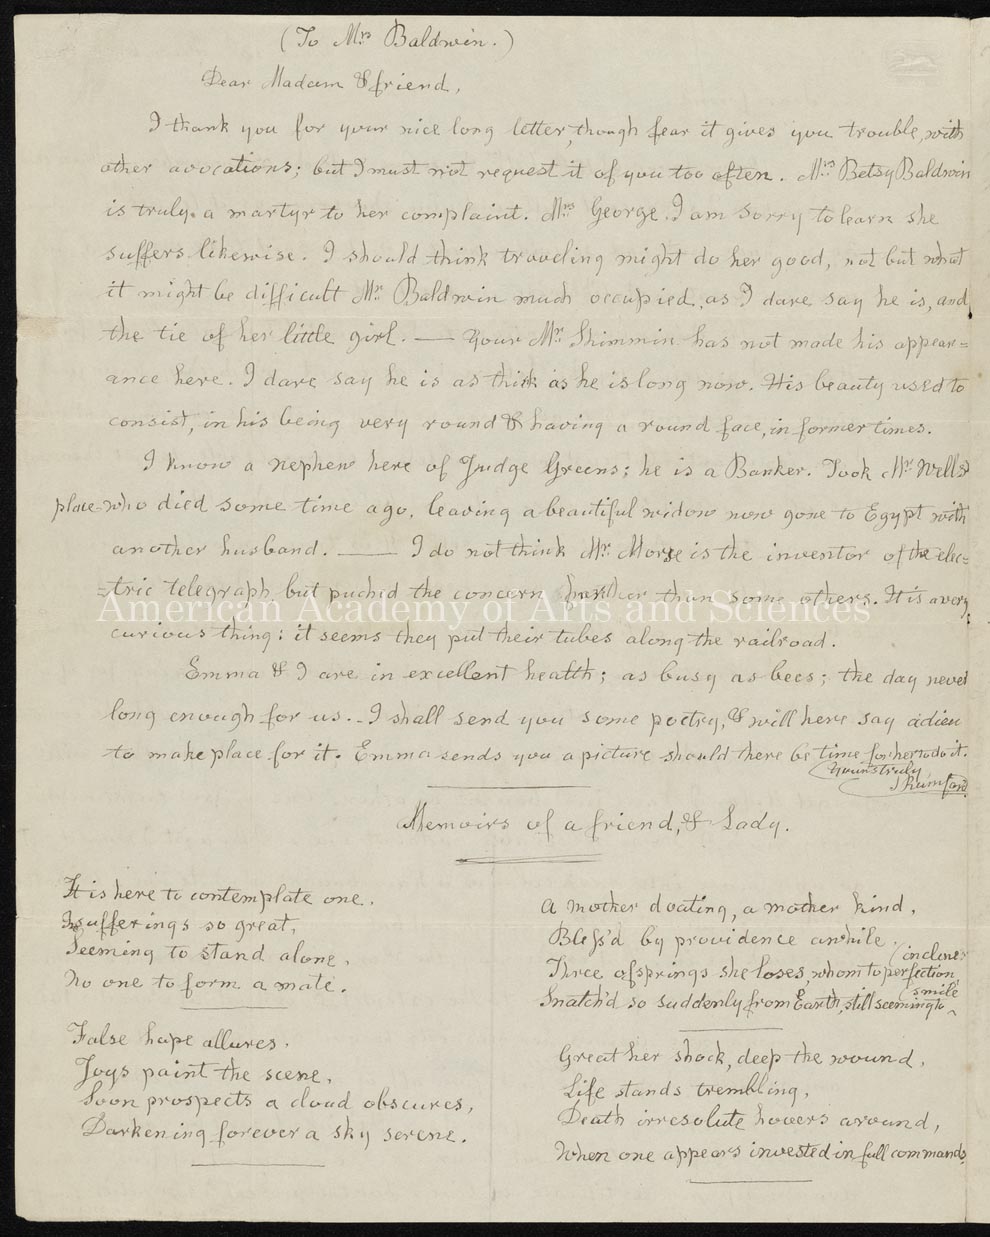 (To Mrs Baldwin.)
Dear Madam & friend,
I thank you for your nice long letter, though fear it gives you trouble, with
other avocations; but I must not request it of you too often. Mrs Betsy Baldwin
is truly a martyr to her complaint. Mrs George I am sorry to learn she
suffers likewise. I should think traveling might do her good, not but what
it might be difficult Mr Baldwin much occupied, as I dare say he is, and
the tie of her little girl. — Your Mr Shimmin has not made his appear=
ance here. I dare say he is as thick as he is long now. His beauty used to
consist, in his being very round & having a round face, in former times.
I know a nephew here of Judge Greens; he is a Banker. Took Mr Wells'
place who died some time ago, leaving a beautiful widow now gone to Egypt with
another husband. — I do not think Mr Morse is the inventor of the elec=
=tric telegraph, but puchid the concern further than some others. It is a very
curious thing; it seems they put their tubes along the railroad.
Emma & I are in excellent health; as busy as bees; the day never
long enough for us. - I shall send you some poetry, & will here say adieu
to make place for it. Emma sends you a picture should there be time for her to do it.
Yours truly
S Rumford.
Memoirs of a friend, & Lady.
It is here to contemplate one,
In sufferings so great,
Seeming to stand alone,
No one to form a mate.
False hope allures,
Joys paint the scene,
Soon prospects a cloud obscures,
Darkening forever a sky serene.
A mother doating, a mother kind,
Bless'd by providence awhile,
Three ofsprings she loses, whom to perfection
(inclined
Snatch'd so suddenly from Earth, still seeming to
(smile
Great her shock, deep the wound,
Life stands trembling,
Death irresolute hovers around,
When one appears invested in full command,
American Academy of Arts and Sciences